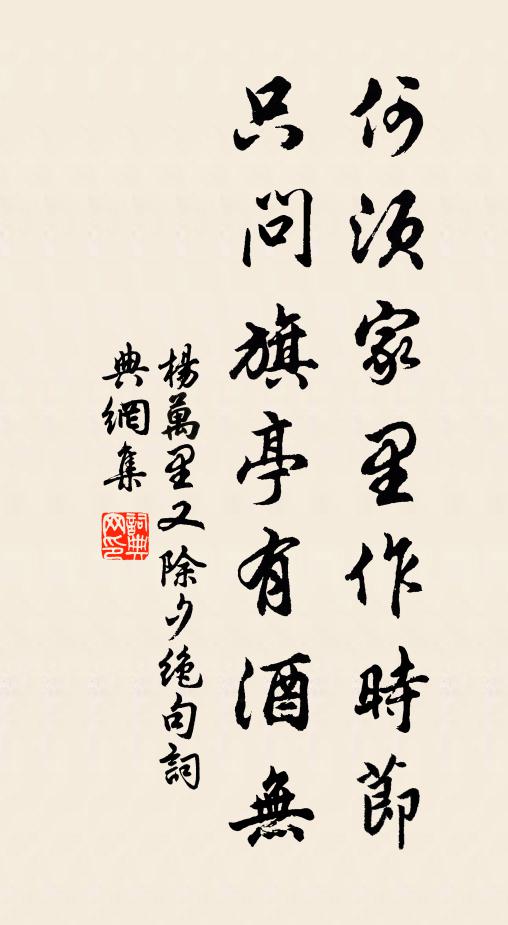 何須家里作時節
只問旗亭有酒無
楊萬里又除夕絶句詞
典網集
詞典
网印